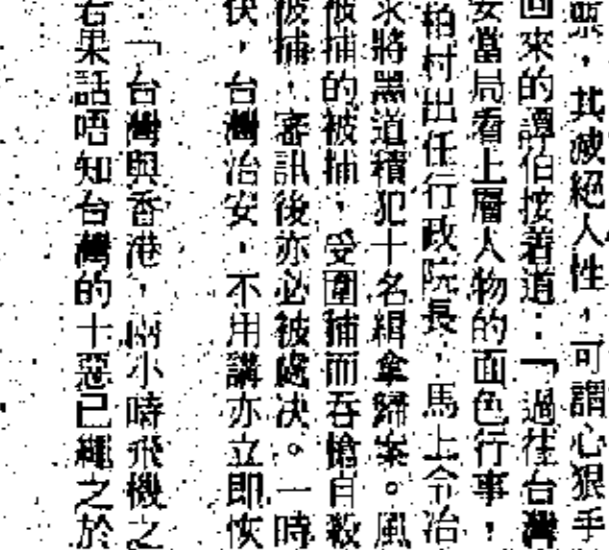 禦，其滅絕人性，可謂心狠手
回來的譚伯接着道：「過往台灣
安當局看上層人物的面色行事，
柏村出任行政院長，馬上令治
求將黑道積犯十名緝拿歸案。風
被捕的被捕，受圍捕而吞槍自殺
被捕，審訊後亦必被處決。一時
快，台灣治安，不用講亦立即恢
：「台灣與香港，兩小時飛機之
若果話唔知台灣的十惡已繩之於